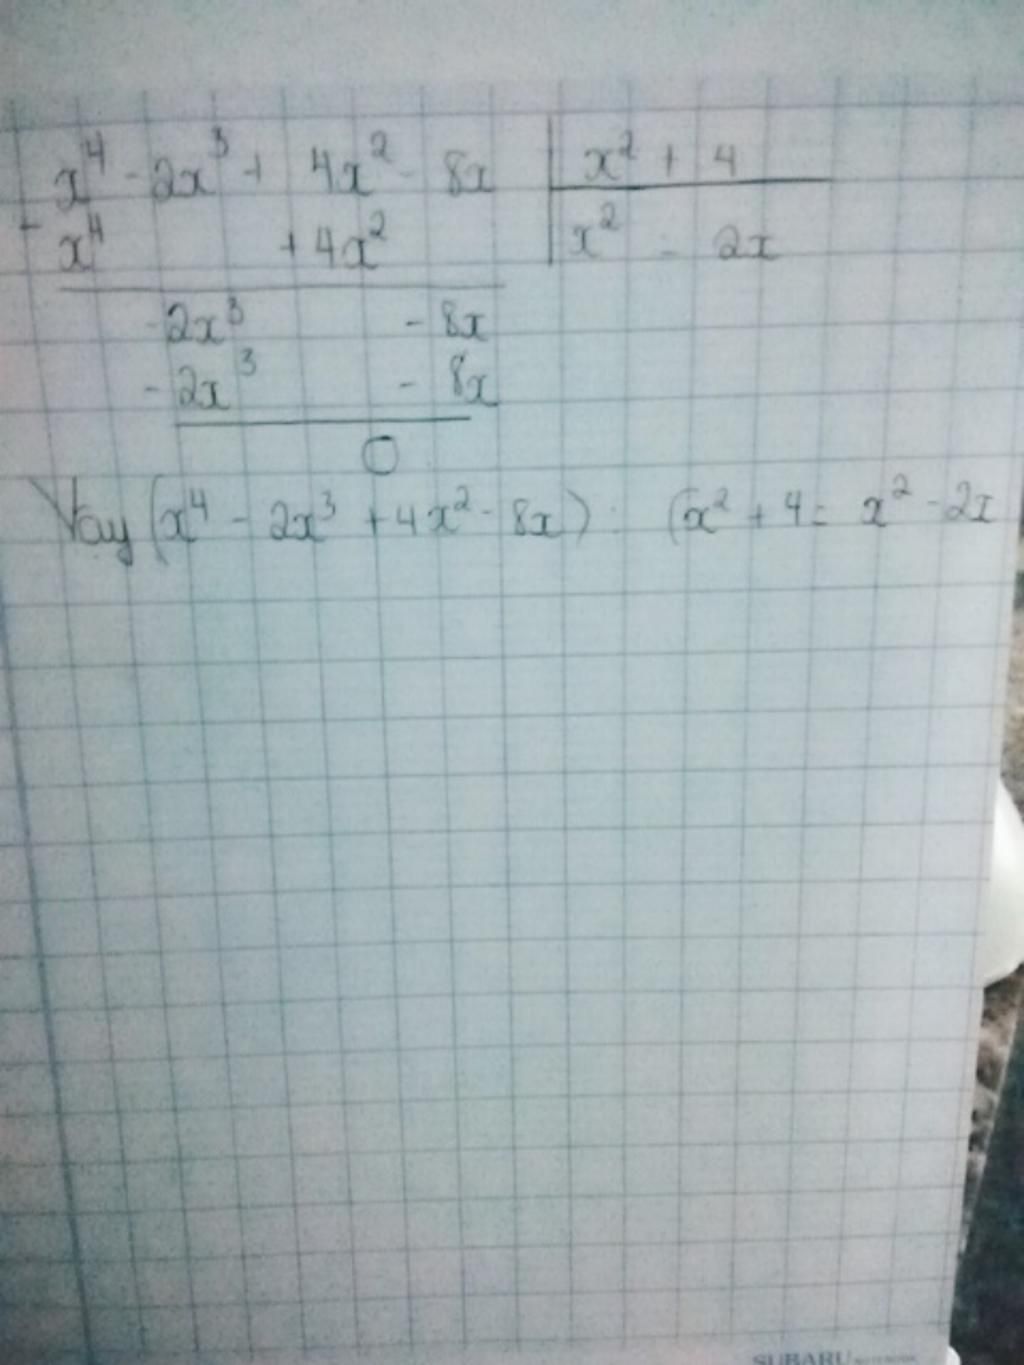 x⁴ - 2x³ + 4x² - 8x | x² + 4
- x⁴ + 4x² | x² - 2x
- 2x³ - 8x
- 2x³ - 8x
0
Vay (x⁴ - 2x³ + 4x² - 8x) : (x² + 4 = x² - 2x
SUBARU